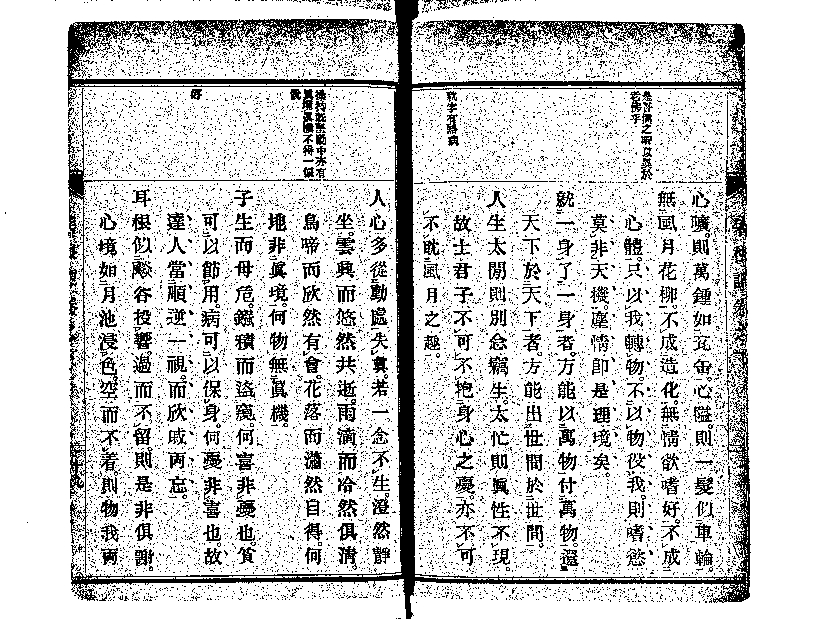 是吾儒之所以異於
老佛乎
心曠。則萬鍾如瓦缶。心隘。則一髮似車輪。
無風月花柳不成造化。無情欲嗜好不成
心體。只以我轉物不以物役我。則嗜慾
莫非天機。塵情即是理境矣。
就一身了一身者。方能以萬物付萬物。還
天下於天下者。方能出世間於世間。
人生太閒則別念竊生。太忙則眞性不現。
故士君子不可不抱身心之憂。亦不可
不耽風月之趣。
人心多從動處失眞。若一念不生。澄然靜
坐。雲興而悠然共逝。雨滴而冷然俱清。
鳥啼而欣然有會。花落而瀟然自得。何
地非眞境。何物無眞機。
子生而母危。鏹積而盜窺。何喜非憂也。貧
可以節用。病可以保身。何憂非喜也。故
達人當順逆一視而欣戚兩忘。
耳根似飈谷投響。過而不留。則是非俱謝。
心境如月池浸色。空而不着。則物我兩